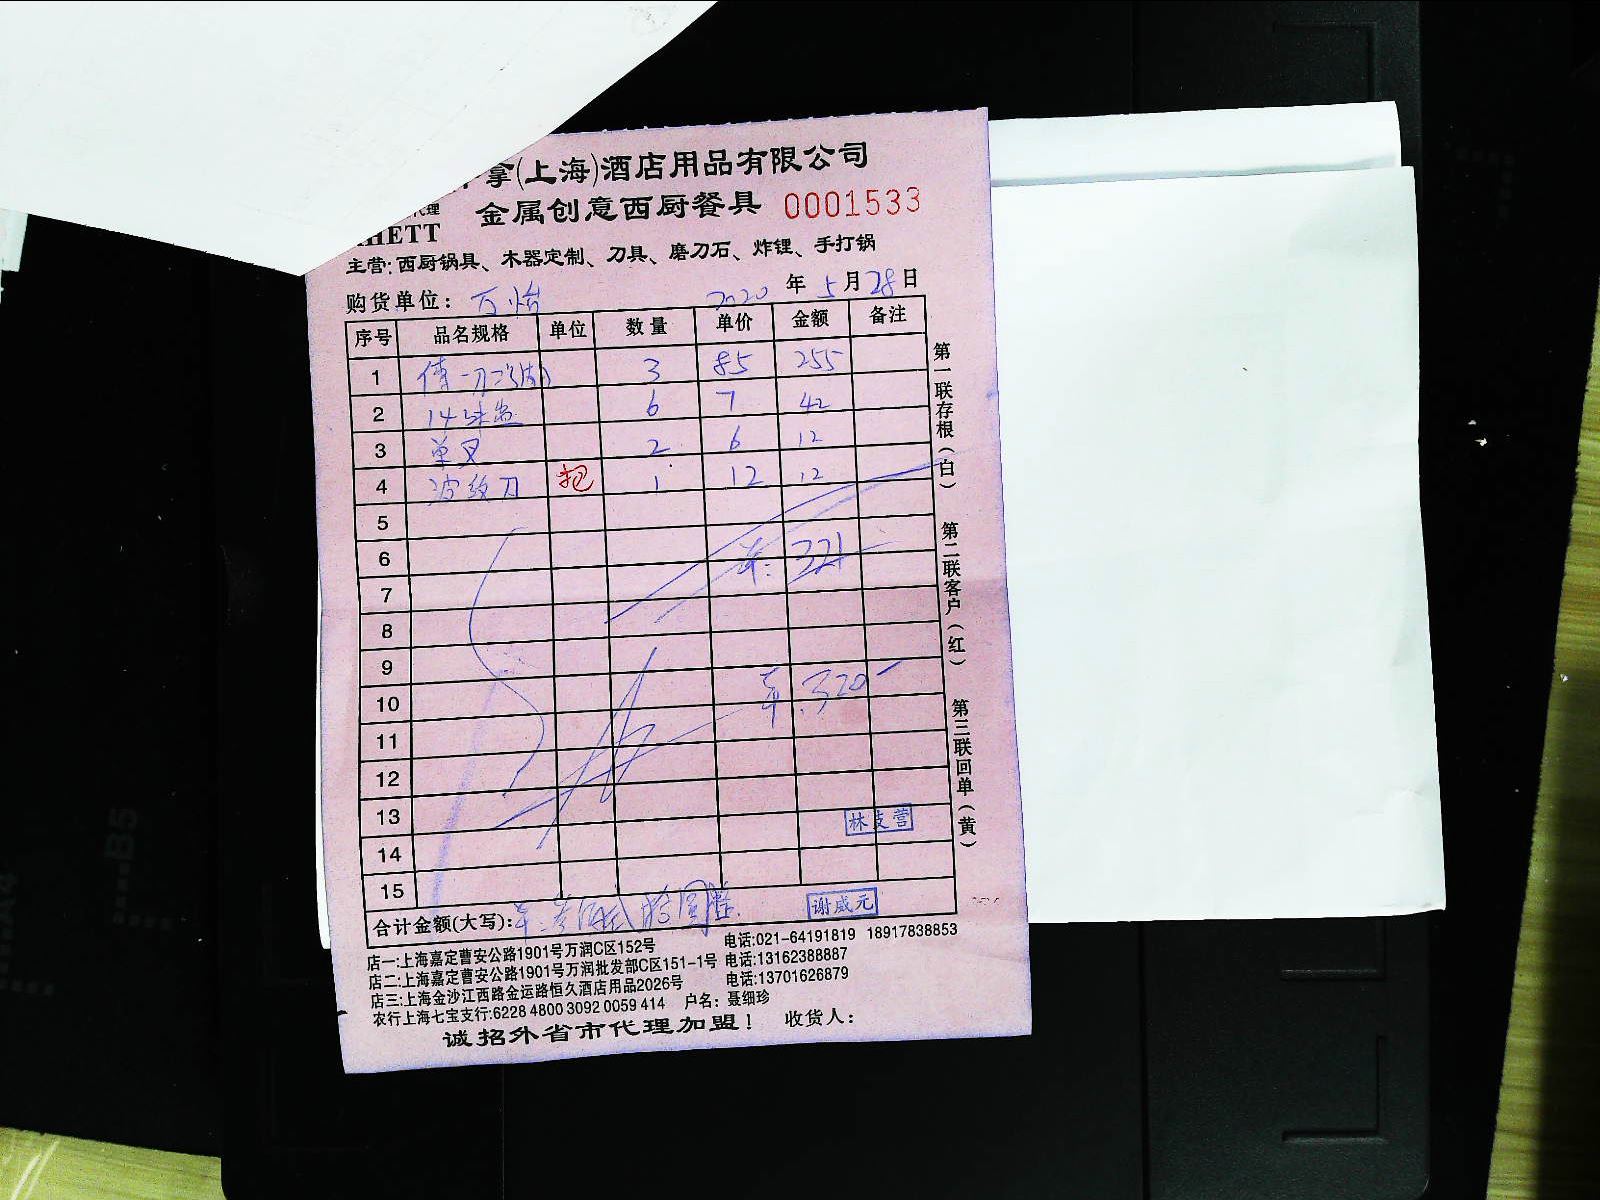 拿(上海)酒店用品有限公司
代理 金属创意西厨餐具 0001533
HETT
主营:西厨锅具、木器定制、刀具、磨刀石、炸锂、手打锅
购货单位: 万怡 2020年5月28日
序号 品名规格 单位 数量 单价 金额 备注
1 3 85 255
2 14 6 7 42
3 单叉 2 6 12
4 波纹刀 把 1 12 12
5
6 321
7
8
9
10 320
11
12
13 林支营
14
15
合计金额(大写): 谢威元
店一:上海嘉定曹安公路1901号万润C区152号 电话:021-64191819 18917838853
店二:上海嘉定曹安公路1901号万润批发部C区151-1号 电话:13162388887
店三:上海金沙江西路金运路恒久酒店用品2026号 电话:13701626879
农行上海七宝支行:6228 4800 3092 0059 414 户名:聂细珍
诚招外省市代理加盟! 收货人:
第一联存根(白) 第二联客户(红) 第三联回单(黄)
B5
A4